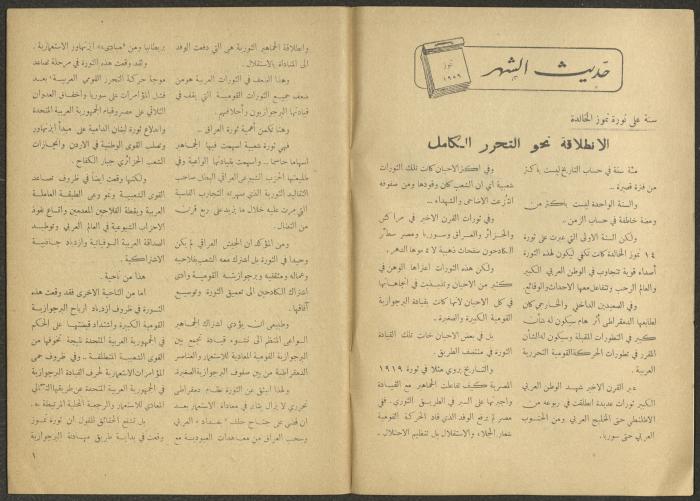 حديث الشهر
تموز
١٩٥٩
سنة على ثورة تموز الخالدة
الانطلاقة نحو التحرر الكامل
مئة سنة في حساب التاريخ ليست باكثر
من فترة قصيرة ..
والسنة الواحدة ليست باكثر من
ومضة خاطفة في حساب الزمن ..
ولكن السنة الاولى التي عبرت على ثورة
١٤ تموز الخالدة كانت تكفي ليكون لهذه الثورة
أصداء قوية تتجاوب في الوطن العربي الكبير
والعالم الرحب وتتفاعل معها الاحداث والوقائع.
وفي الصعيدين الداخلي والخارجي كان
لطابعها الديمقراطي أثر هام سيكون له شأن
كبير في التطورات المقبلة وسيكون له الشأن
المقرر في تطورات الحركة القومية التحررية
العربية .
عبر القرن الاخير شهد الوطن العربي
الكبير ثورات عديدة انطلقت في ربوعه من
الاطلنطي حتى الخليج العربي ومن الجنوب
العربي حتى سوريا.
وفي اكثر الاحيان كانت تلك الثورات
شعبية اي ان الشعب كان وقودها ومن صفوفه
انتزعت الاضاحي والشهداء ..
وفي ثورات القرن الاخير في مراكش
والجزائر والعراق وسوريا ومصر سطر
الكادحون صفحات ذهبية لا تمحوها الدهر.
ولكن هذه الثورات اعتراها الوهن في
كثير من الاحيان وتذبذبت في اتجاهاتها
في كل الاحيان لانها كانت بقيادة البرجوازية
القومية الكبيرة والصغيرة .
بل في بعض الاحيان خانت تلك القيادة
الثورة في منتصف الطريق .
والتاريخ يروي مثلا في ثورة ١٩١٩
المصرية كيف تفاعلت الجماهير مع القيادة
واجبرتها على السير في الطريق الثوري. ففي
مصر لم يرفع الوفد الذي قاد الحركة القومية
شعار الجلاء والاستقلال بل تنظيم الاحتلال ..
وانطلاقة الجماهير الثورية هي التي دفعت الوفد
الى المناداة بالاستقلال .
وهذا الضعف في الثورات العربية هو من
ضعف جميع الثورات القومية التي يقف في
قيادتها البرجوازيون وأحلافهم .
وهنا تكمن أهمية ثورة العراق ..
فهي ثورة شعبية اسهمت فيها الجماهير
اسهاما حاسما .. واسهمت بقيادتها الواعية وفي
طليعتها الحزب الشيوعي العراقي البطل صاحب
التقاليد الثورية الذي صهرته التجارب القاسية
التي مرت عليه خلال ما يزيد على ربع قرن
من النضال .
ومن المؤكد ان الجيش العراقي لم يكن
وحيدا في الثورة بل اشترك معه الشعب بفلاحيه
وعماله ومثقفيه وبرجوازيته القومية وادى
اشتراك الكادحين الى تعميق الثورة وتوسيع
آفاقها .
وطبيعي ان يؤدي اشتراك الجماهير
الواعي المنظم الى نشوء قيادة تجمع بين
البرجوازية القومية المعادية للاستعمار والعناصر
الديمقراطية من بين صفوف البرجوازية الصغيرة.
ولهذا انبثق عن الثورة نظام ديمقراطي
تحرري لا يزال يثابر في معاداة الاستعمار بعد
ان قضى على جناح حلف « بغداد » العربي
وسحب العراق من معاهدات العبودية مع
بريطانيا ومن «مبادىء» ايزنهاور الاستعمارية .
ولقد وقعت هذه الثورة في مرحلة تصاعد
موجة حركة التحرر القومي العربية بعد
فشل المؤامرات على سوريا واخفاق العدوان
الثلاثي على مصر وقيام الجمهورية العربية المتحدة
واندلاع ثورة لبنان الدامية على مبدأ ايزنهاور
وتصلب القوى الوطنية في الاردن وانجازات
الشعب الجزائري جبار الكفاح .
ولكنها وقعت ايضا في ظروف تصاعد
القوى الشعبية ونمو وعي الطبقة العاملة
العربية ويقظة الفلاحين المعدمين واتساع نفوذ
الاحزاب الشيوعية في العالم العربي وتوطيد
الصداقة العربية السوفياتية وازدياد جاذبية
الاشتراكية .
هذا من ناحية .
اما من الناحية الاخرى فقد وقعت هذه
الثورة في ظروف ازدياد ارباح البرجوازية
القومية الكبيرة واشتداد قبضتها على الحكم
في الجمهورية العربية المتحدة نتيجة تخوفها من
القوى الشعبية المنطلقة .. وفي ظروف حمى
المؤامرات الاستعمارية لحرف القيادة البرجوازية
في الجمهورية العربية المتحدة عن طريقها النضالي
المعادي للاستعمار والرجعية المحلية المرتبطة به .
بل تشفع الحقائق للقول ان ثورة تموز
وقعت في بداية طريق مهادنة البرجوازية
١